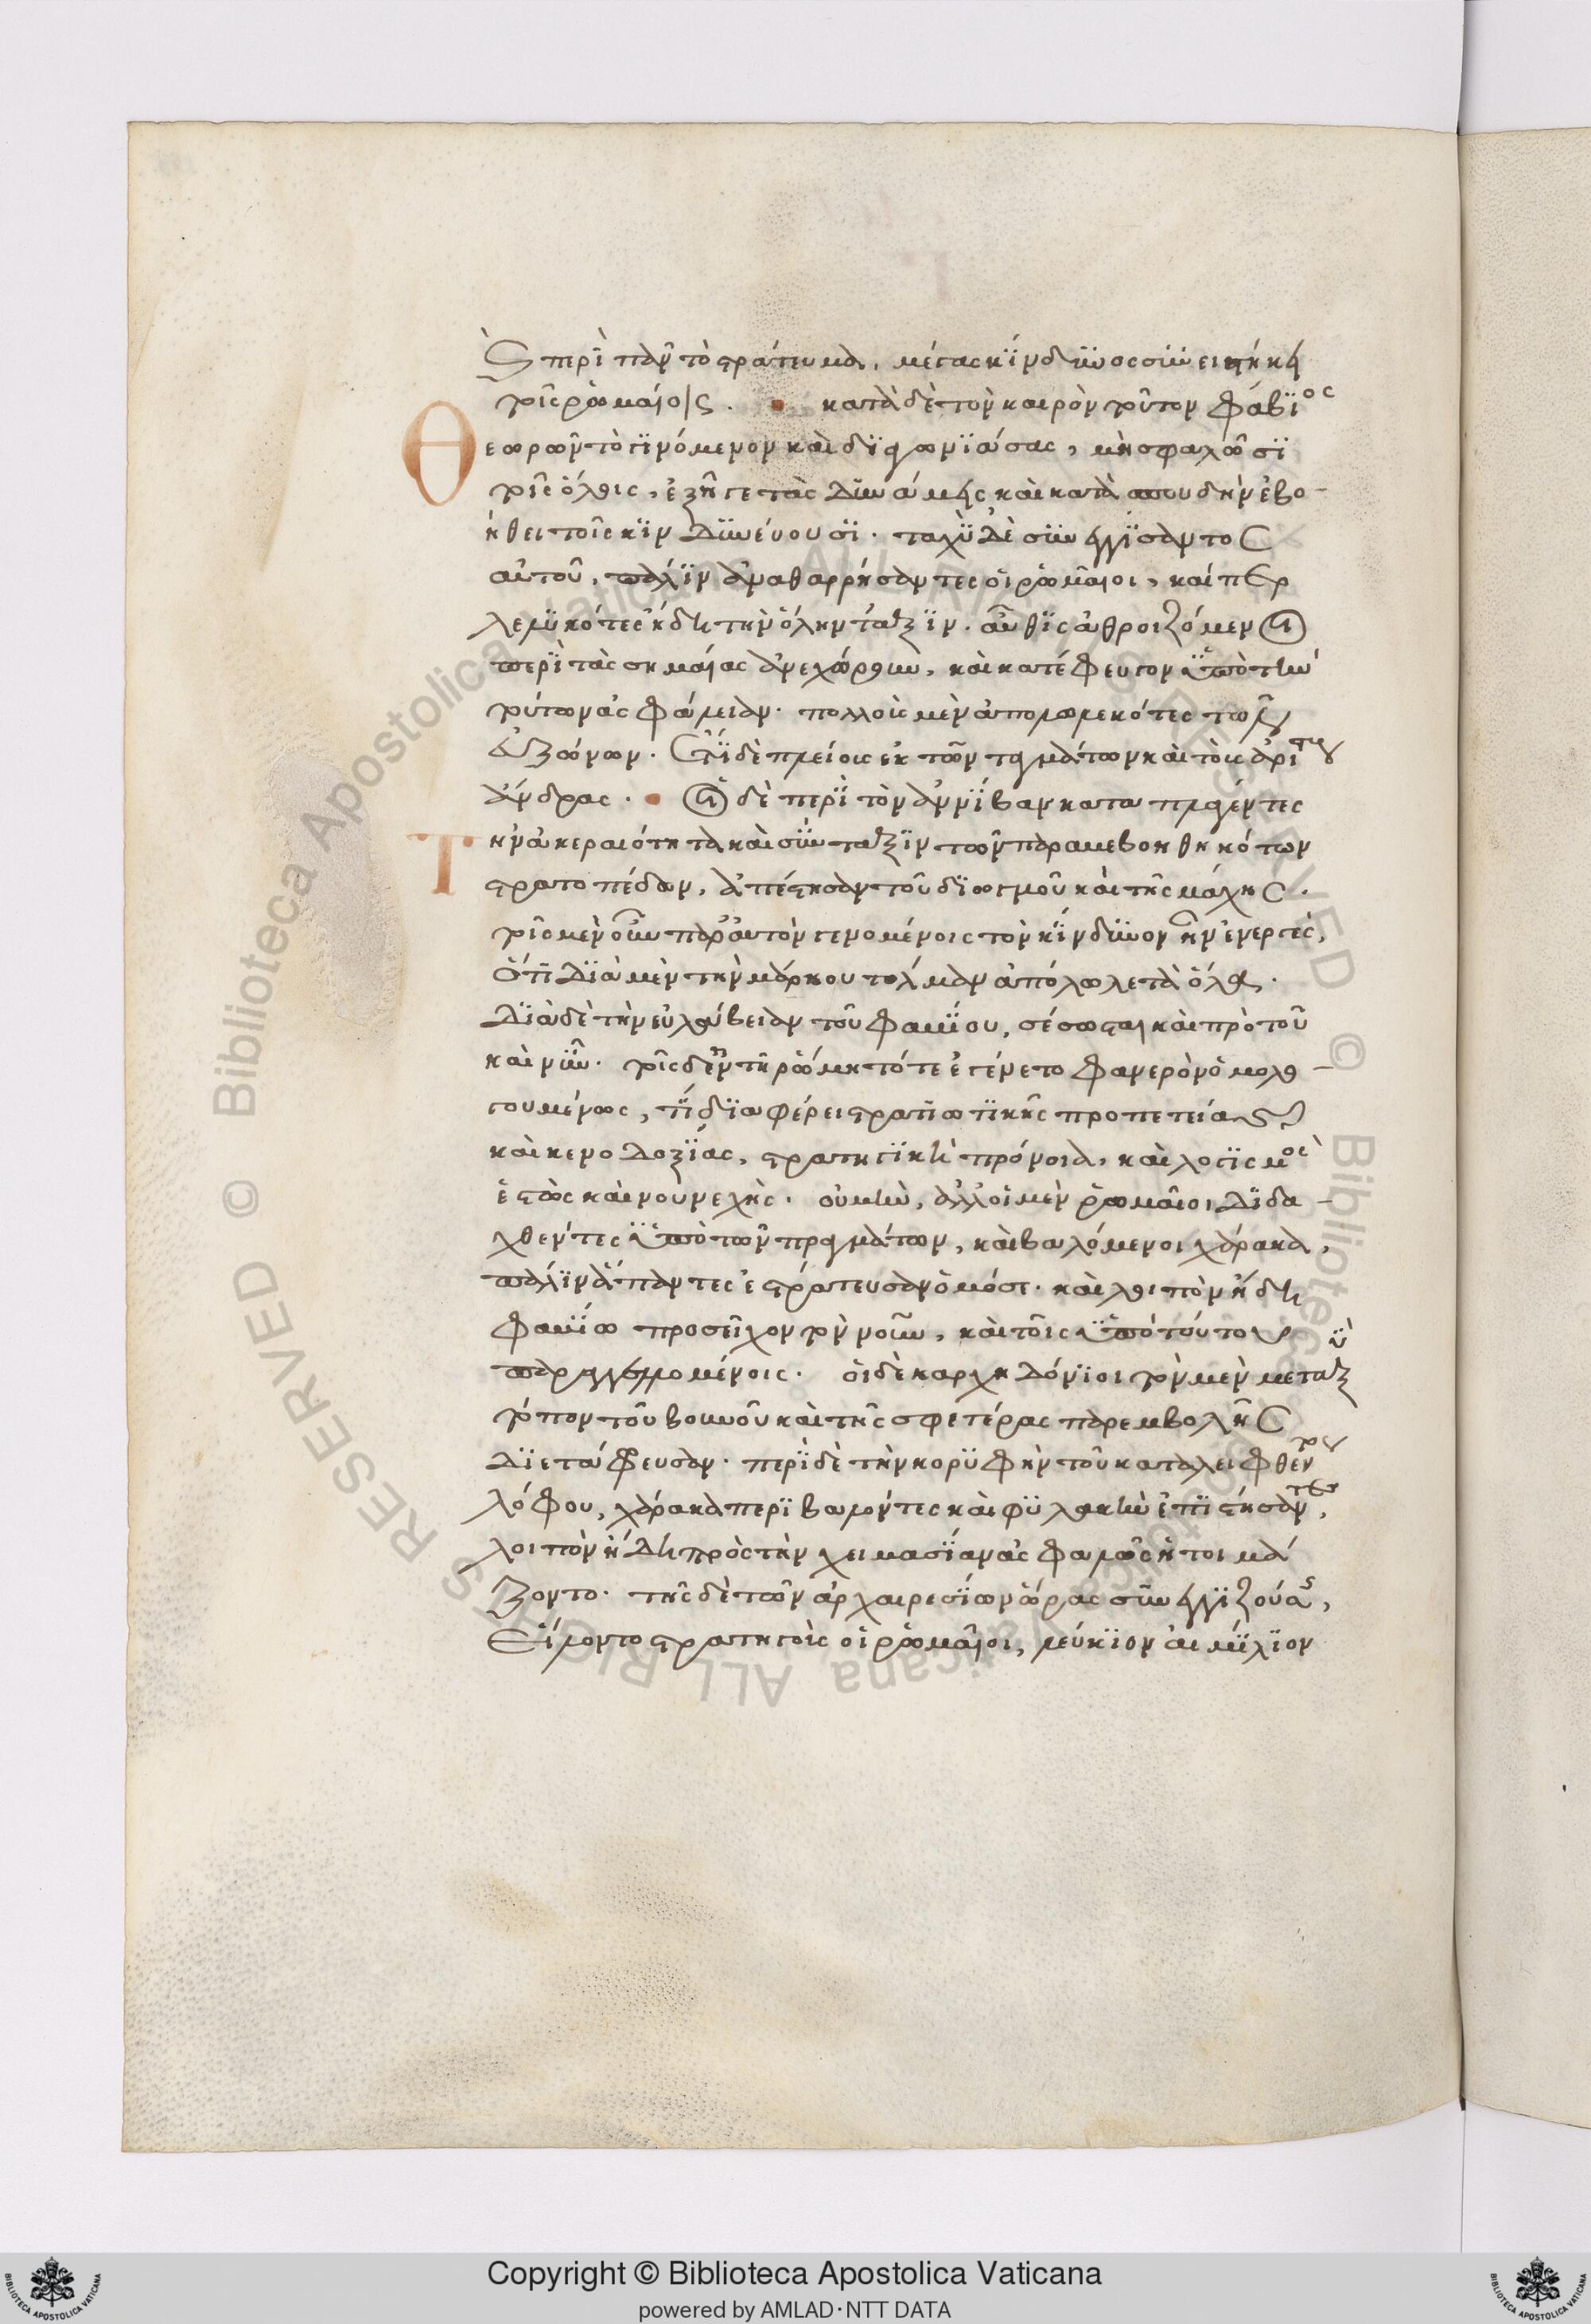 ὃς περὶ πᾶν τὸ στράτευμα, μέγας κίνδυνος συνειστήκει
τοῖς ῥωμαίοις. κατὰ δὲ τὸν καιρὸν τοῦτον φάβιος
Θεωρῶν τὸ γινόμενον καὶ διαγωνιάσας, μὴ σφαλῶσι
τοῖς ὅλοις, ἐξῆγε τὰς δυνάμεις καὶ κατὰ σπουδὴν ἐβο-
ήθει τοῖς κινδυνεύουσι. ταχὺ δὲ συνεγγίσαντος
αὐτοῦ, πάλιν ἀναθαρρήσαντες οἱ ῥωμαῖοι, καίπερ
λελυκότες ἤδη τὴν ὅλην τάξιν. αὖθις ἀθροιζόμενοι
περὶ τὰς σημαίας ἀνεχώρουν, καὶ κατέφευγον ὑπὸ τὴν
τούτων ἀσφάλειαν. πολλοὺς μὲν ἀπολωλεκότες τῶν
εὐζώνων. ἔτι δὲ πλείους ἐκ τῶν ταγμάτων καὶ τοὺς ἀρίστους
ἄνδρας. οἱ δὲ περὶ τὸν ἀννίβαν καταπλαγέντες
Τὴν ἀκεραιότητα καὶ σύνταξιν τῶν παραβεβοηθηκότων
στρατοπέδων, ἀπέστησαν τοῦ διωγμοῦ καὶ τῆς μάχης.
τοῖς μὲν οὖν παρ' αὐτὸν γενομένοις τὸν κίνδυνον ἦν ἐνεργές,
ὅτι διὰ μὲν τὴν μάρκου τόλμαν ἀπόλωλε τὰ ὅλα.
διὰ δὲ τὴν εὐλάβειαν τοῦ φαβίου, σέσωσται καὶ πρὸ τοῦ
καὶ νῦν. τοῖς δ' ἐν τῇ ῥώμῃ τότε ἐγένετο φανερὸν ὁμολο-
γουμένως, τί διαφέρει στρατιωτικῆς προπετείας
καὶ κενοδοξίας, στρατηγικὴ πρόνοια, καὶ λογισμὸς
ἑστὼς καὶ νουνεχής. οὐ μὴν, ἀλλ' οἱ μὲν ῥωμαῖοι διδα-
χθέντες ὑπὸ τῶν πραγμάτων, καὶ βαλόμενοι χάρακα,
πάλιν ἅπαντες ἐστράτευσαν ὁμόσε. καὶ λοιπὸν ἤδη
φαβίῳ προσεῖχον τὸν νοῦν, καὶ τοῖς ὑπὸ τούτου
παραγγελλομένοις. οἱ δὲ καρχηδόνιοι τὸν μὲν μεταξὺ
τόπον τοῦ βουνοῦ καὶ τῆς σφετέρας παρεμβολῆς
διετάφρευσαν. περὶ δὲ τὴν κορυφὴν τοῦ καταλειφθέντος
λόφου, χάρακα περιβαλόντες καὶ φυλακὴν ἐπιστήσαντες,
λοιπὸν ἤδη πρὸς τὴν χειμασίαν ἀσφαλῶς ἡτοιμά
ζοντο. τῆς δὲ τῶν ἀρχαιρεσίων ὥρας συνεγγιζούσης,
Εἵλοντο στρατηγοὺς οἱ ῥωμαῖοι, λεύκιον αἰμίλιον